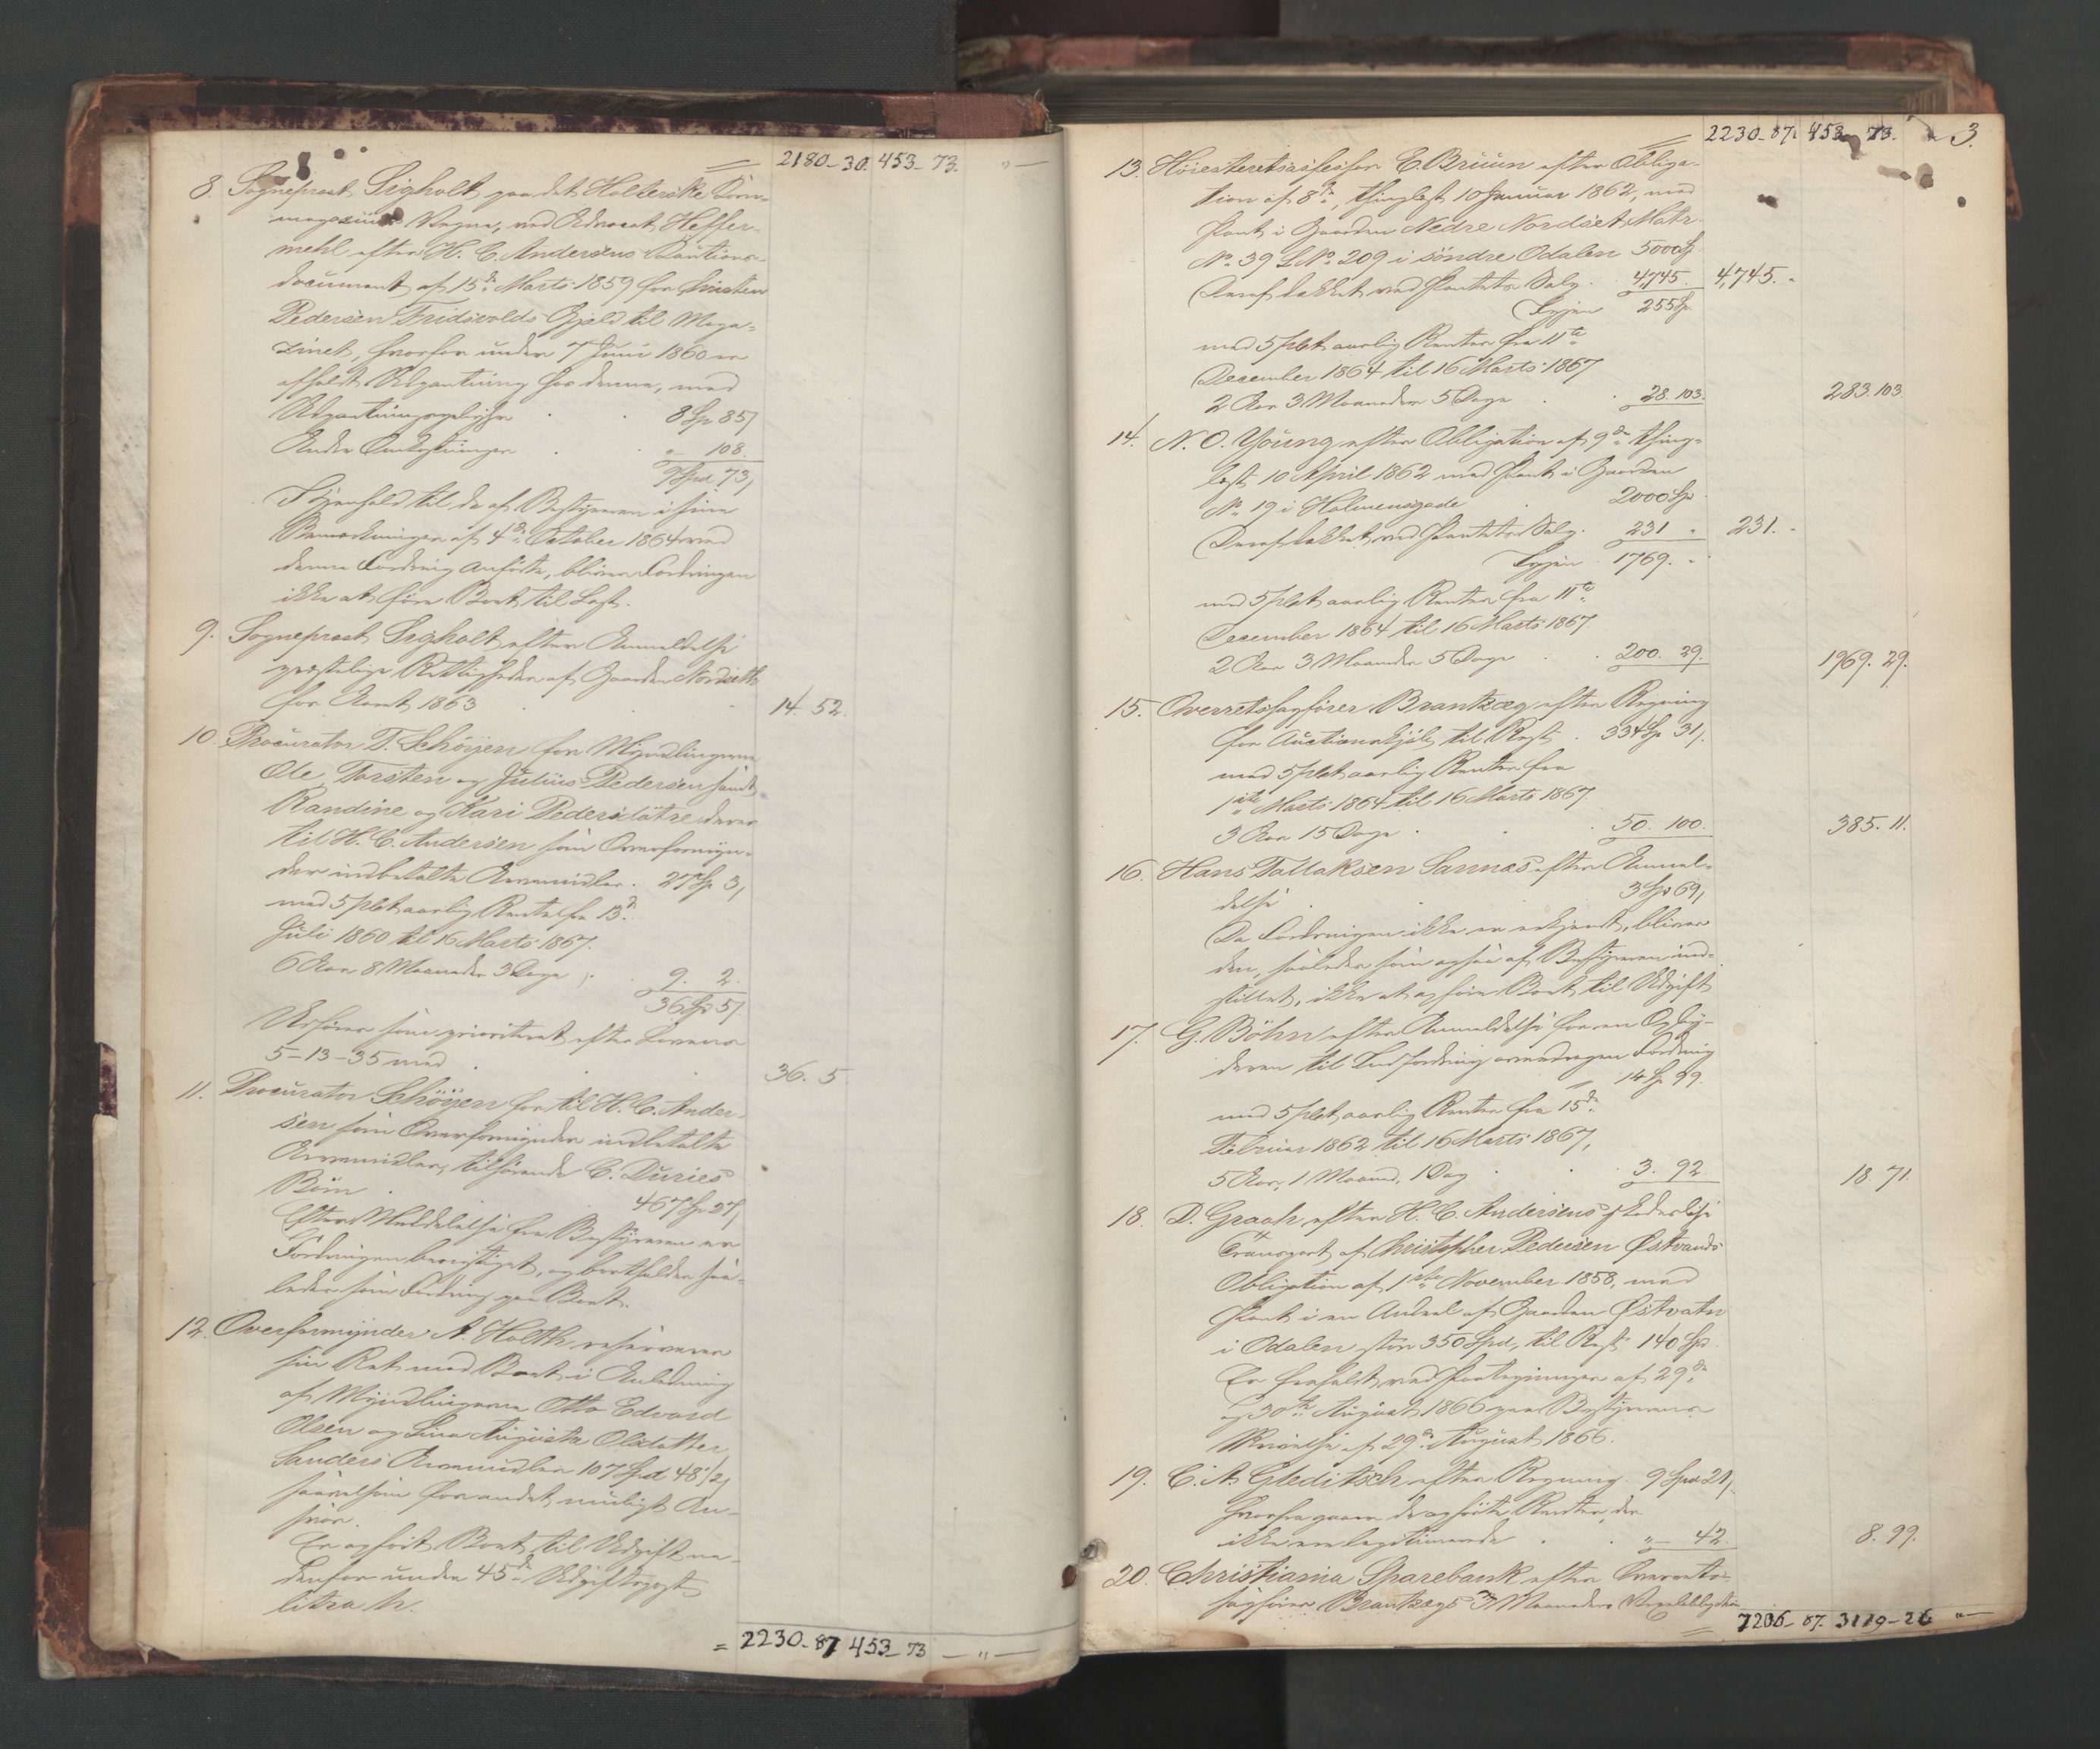 2180-30. 453-73. "—
8. Sogneprest Sigholt paa det Halterske Korn-
magaziins Vegne, ved Advocat Heffer-
mehl efter H. C. Andersens Cautions-
document af 15de Marts 1859 for Christen
Pedersen Fridsvolds Gjæld til Maga-
zinet, hvorfor under 7 Juni 1860 er
afholdt Udpantning hos denne, med
Udpantningsgebyhr . . 8 Sp 85/
Andre Omkostninger . . "— 108.
9 Spd 73/
I Henhold til de af Bestyreren i sine
Bemærkninger af 4de October 1864 ved
denne Fordring anførte, bliver Fordringen
ikke at føre Boet til Last.
9. Sogneprest Sigholt efter Anmeldelse
præstelige Rettigheder af Gaarden Nordseth
for Aaret 1863 . 14. 52.
10. Procurator T. Schöyen for Myndlingerne
Ole, Torsten og Julius Pedersen samt
Randine og Kari Pedersdötre deres
til H. C. Andersen som Overformyn-
der indbetalte Arvemidler . 27 Sp 3/
med 5 pCt aarlig Rente fra 13de
Juli 1860 til 16 Marts 1867.
6 Aar 8 Maaneder 3 Dage . 9. 2.
36 Sp 5/
Udføres som prioriteret efter Lovens
5-13-35 med . 36. 5
11. Procurator Schöyen for til H. C. Ander-
sen som Overformynder indbetalte
Arvemidler, tilhørende C. Duries
Börn . 467 Sp 27/
Efter Meddelelse fra Bestyreren er
Fordringen berigtiget, og bortfalder saa-
ledes som Fordring paa Boet.
12. Overformynder A. Holth reserverer
sin Ret mod Boet i Anledning
af Myndlingerne Otto Edvard
Olsen og Lina Augusta Olsdatter
Sanders Arvemidler 107 Spd 48 1/2/
saavelsom for andet muligt An-
svar.
Er opført Boet til Udgift ne-
denfor under 45de Udgiftspost
litra h.
= 2230-87 453-73 —"—
2230-87. 453-73. " 3.
13. Höiesteretsassessor E. Bruun efter Obliga-
tion af 8de, thinglæst 10 Januar 1862, med
Pant i Gaarden Nedre Nordset Matr.
No 39 L No 209 i söndre Odalen 5000 Sp
Deraf dækket ved Pantets Salg . 4,745. 4,745. "
Igjen 255 Sp
med 5 pCt aarlig Renter fra 11te
December 1864 til 16 Marts 1867
2 Aar 3 Maaneder 5 Dage . . 28. 103. 283. 103.
14. N. O. Young efter Obligation af 9de thing-
læst 10 April 1862 med Pant i Gaarden
No 19 i Holmensgade . 2000 Sp
Deraf dækket ved Pantets Salg . 231 " 231. "
Igjen 1769. "
med 5 pCt aarlig Renter fra 11te
December 1864 til 16 Marts 1867
2 Aar 3 Maaneder 5 Dage . . 200. 29. 1969. 29.
15. Overretssagfører Brantzæg efter Regning
for Auctionskjöb, til Rest . 334 Sp 31/.
med 5 pCt aarlig Renter fra
1ste Marts 1864 til 16 Marts 1867
3 Aar 15 Dage . . . 50. 100. 385. 11.
16. Hans Tallaksen Sannæs efter Anmel-
delse . 3 Sp 69/
Da Fordringen ikke er erkjendt, bliver
den, saaledes som ogsaa af Bestyreren ind-
stillet, ikke at opføre Boet til Udgift
17. G. Böhn efter Anmeldelse for en
deren til Indfordring overdragen Fordring
14 Sp 99.
med 5 pCt aarlig Renter fra 15de
Februar 1862 til 16 Marts 1867,
5 Aar, 1 Maaned, 1 Dag . . 3. 92 18. 71.
18. D. Graah efter H. C. Andersens
Transport af Christopher Pedersen Østvands
Obligation af 1ste November 1858, med
Pant i en Andeel af Gaarden Østvatn
i Odalen stor 350 Spd, til Rest 140 Spd.
Er frafaldt ved Paategninger af 29de
og 30te August 1866 paa Bestyrerens
Skrivelse af 29de August 1866.
19. C. A. Gleditsch efter Regning . 9 Spd 21/.
hvorfra gaaer de opførte Renter, der
ikke ere legitimerede . . "— 42. 8. 99.
20. Christiania Sparebank efter Overrets-
sagfører Brantzægs 3 Maaneders Vexelobligation
7206-87. 3119-26 "—